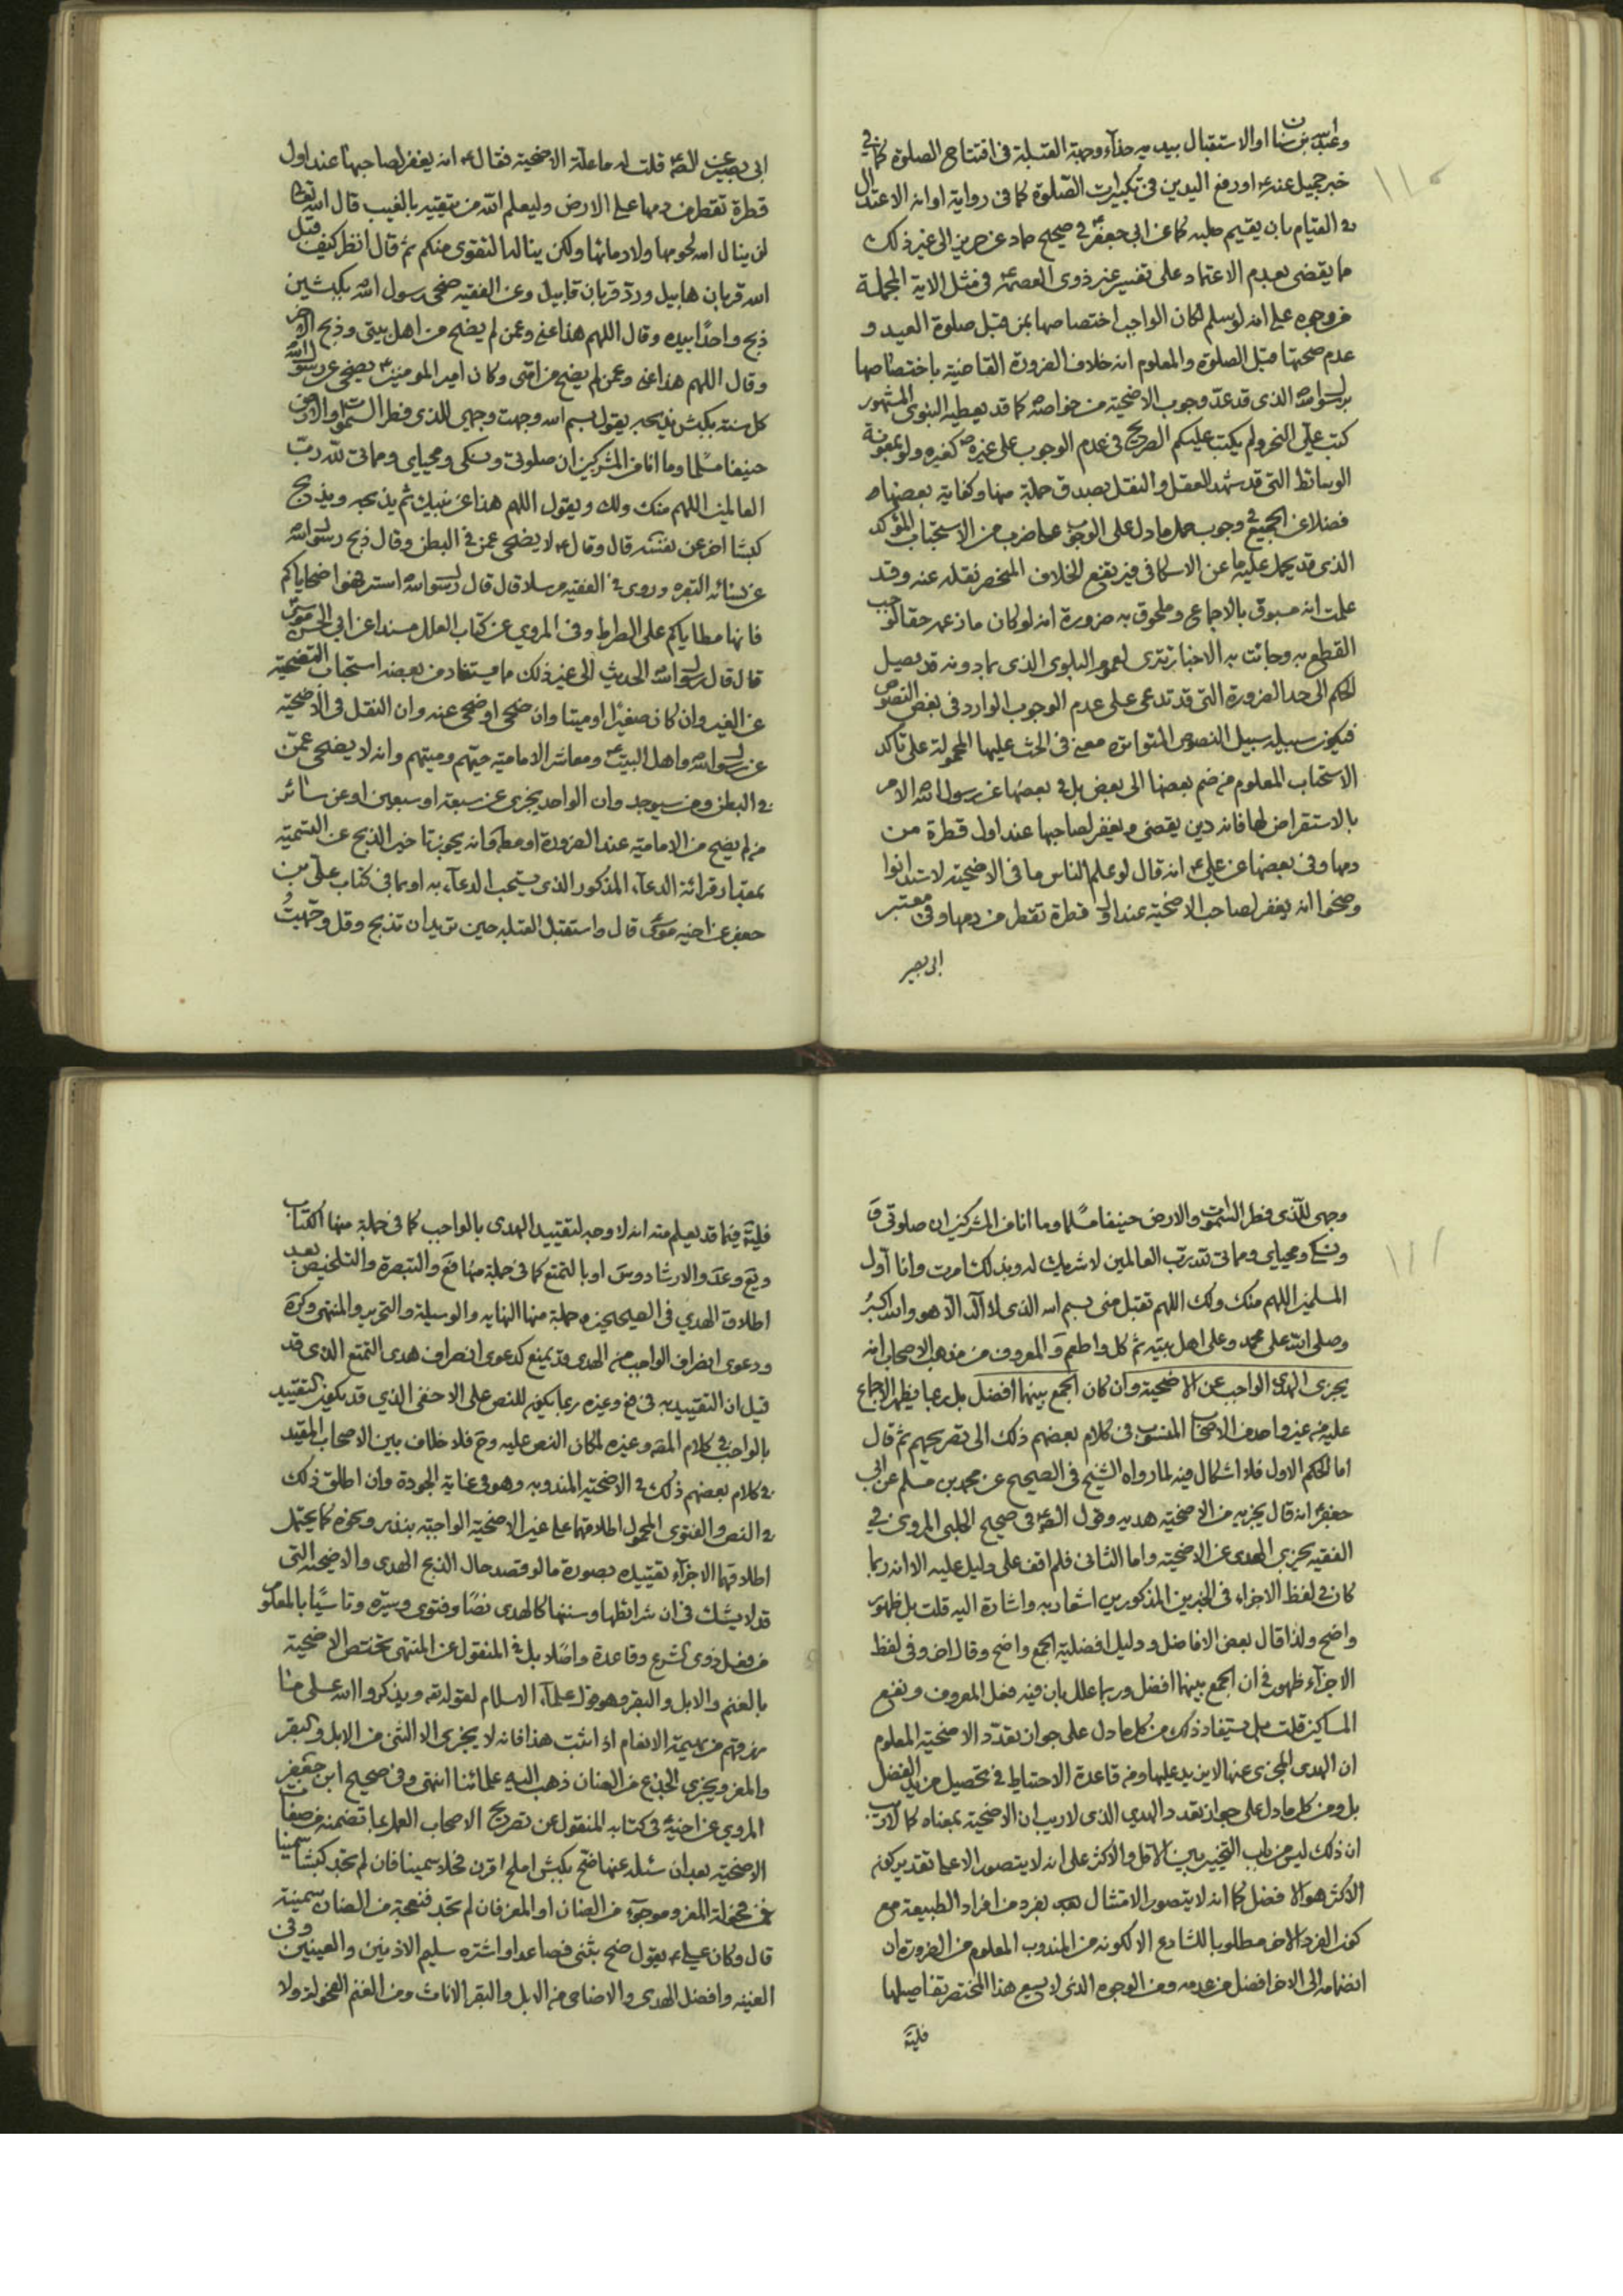 وعبد الله بن سنان او الاستقبال بيديه حذاء وجهه القبلة في افتتاح الصلوة كما في
خبر جميل عنه ع او رفع اليدين في تكبيرات الصلوة كما في رواية او انه الاعتدال
في القيام بان يقيم صلبه كما عن ابي جعفر ع في صحيح حماد عن حريز الى غير ذلك
مما يقضى بعدم الاعتماد على تفسير غير ذوى العصمة في مثل الاية المجملة
من وجوه على انه لو سلم لكان الواجب اختصاصها بمن قبل صلوة العيد و
عدم صحتها قبل الصلوة والمعلوم انه خلاف الضرورة القاضية باختصاصها
برسول الله الذى قد عدّ وجوب الاضحية من خواصه كما قد يعطيه النبوى المشهور
كتب علّى النحر ولم يكتب عليكم الصريح في عدم الوجوب على غيره ص كغيره ولو بمعونة
الوسائط التى قد شهد العقل والنقل بصدق جملة منها وكفاية بعضها
فضلا عن الجميع في وجوب حمل ما دل على الوجوب على ضرب من الاستحباب المؤكد
الذى قد يحمل عليه ما عن الاسكافى فيرتفع الخلاف المنحصر نقله عنه وقد
علمت انه مسبوق بالاجماع وملحوق به ضرورة انه لو كان ما زعمه حقا لوجب
القطع به وجائت به الاخبار تترى لعموم البلوى الذى بما دونه قد يصيل
الحكم الى حد الضرورة التى قد تدعى على عدم الوجوب الوارد في بعض النصوص
فيكون سبيله سبيل النصوص المتواترة معنى في الحث عليها المحمولة على تاكد
الاستحباب المعلوم من ضم بعضها الى بعض بل في بعضها عن رسول الله الامر
بالاستقراض لها فانه دين يقضى ويغفر لصاحبها عند اول قطرة من
دمها وفي بعضها عن علي ع انه قال لو علم الناس ما في الاضحية لاستدانوا
وضحوا انه يغفر لصاحب الاضحية عند اول قطرة تقطر من دمها وفي معتبر
ابى بصير
ابى بصير عن الص ع قلت له ما علة الاضحية فقال ع انه يغفر لصاحبها عند اول
قطرة تقطر من دمها على الارض وليعلم الله من يتقيه بالغيب قال الله تعالى
لن ينال الله لحومها ولا دمائها ولكن يناله التقوى منكم ثم قال انظر كيف قبل
الله قربان هابيل وردّ قربان قابيل وعن الفقيه ضحى رسول الله بكبشين
ذبح واحدًا بيده وقال اللهم هذا عنى وعمن لم يضح من اهل بيتى وذبح الاخر
وقال اللهم هذا عنى وعمن لم يضح من امتى وكان امير المومنين ع يضحى عن رسول الله
كل سنة بكبش يذبحه يقول بسم الله وجهت وجهى للذى فطر السموات والارض
حنيفا مسلما وما انا من المشركين ان صلوتى ونسكى ومحياى ومماتى لله ربّ
العالمين اللهم منك ولك ويقول اللهم هذا عن نبيك ثم يذبحه ويذبح
كبشا اخر عن نفسه قال وقال ع لا يضحى عمن في البطن وقال ذبح رسول الله
عن نسائه البقرة وروى في الفقيه مرسلا قال قال رسول الله استفرهوا ضحاياكم
فانها مطاياكم على الصراط وفي المروى عن كتاب العلل مسندا عن ابي الحسن موسى
قال قال رسول الله الحديث الى غير ذلك مما يستفاد من بعضه استحباب التضحية
عن الغير وان كان صغيرًا او ميتا وان ضحى او ضحى عنه وان النقل في الاضحية
عن رسول الله واهل البيت ع ومعاشر الامامية حيّهم وميتهم وانه لا يضحى عمّن
في البطن ومن سيوجد وان الواحد يجزى عن سبعة او سبعين او عن سائر
من لم يضح من الامامية عند الضرورة او مطلقا وانه يجوز تاخير الذبح عن التسمية
بمقدار قرائة الدعاء المذكور الذى يستحب الدعاء به او بما في كتاب علّى بن
جعفر عن اخيه موسى قال واستقبل القبلة حين تريد ان تذبح وقل وجّهتُ
وجهى للّذى فطر السموات والارض حنيفا مسلما وما انا من المشركين ان صلوتى
ونسكى ومحياى ومماتى لله ربّ العالمين لا شريك له وبذلك امرت وانا اول
المسلمين اللهم منك ولك اللهم تقبل منى بسم الله الذى لا اله الّا هو والله اكبرُ
وصلى الله على محمد وعلى اهل بيته ثم كل واطعم والمعروف من مذهب الاصحاب انه
يجزى الهدى الواجب عن الاضحية وان كان الجمع بينهما افضل بل ربما يظهر الاجماع
عليه من غير واحد من الاصحاب المنسوب في كلام بعضهم ذلك الى تصريحهم ثم قال
اما الحكم الاول فلا اشكال فيه لما رواه الشيخ في الصحيح عن محمد بن مسلم عن ابي
جعفر ع انه قال يجزيه من الاضحية هديه وقول الص ع في صحيح الحلبى المروى في
الفقيه يجزى الهدى عن الاضحية واما الثانى فلم اقف على دليل عليه الا انه ربما
كان في لفظ الاجزاء في الخبرين المذكورين اشعار به واشارة اليه قلت بل ظهور
واضح ولذا قال بعض الافاضل ودليل افضلية الجمع واضح وقال اخر وفي لفظ
الاجزاء ظهور في ان الجمع بينهما افضل وربما علل بان فيه فعل المعروف ونفع
المساكين قلت بل يستفاد ذلك من كل ما دل على جواز تعدّد الاضحية المعلوم
ان الهدى المجزى عنها لا يزيد عليها ومن قاعدة الاحتياط في تحصيل مزيد الفضل
بل ومن كل ما دل على جواز تعدد الهدى الذى لا ريب ان الاضحية بمعناه كما لا ريب
ان ذلك ليس من باب التخيير بين الاقل والاكثر على انه لا يتصور الا على تقدير كون
الاكثر هو الافضل كما انه لا يتصور الامتثال بعد بفرد من افراد الطبيعة مع
كون الفرد الاخر مطلوبا للشارع الا لكونه من المندوب المعلوم من الضرورة ان
انضمامه الى الاخر افضل من عدمه ومن الوجوه الذى لا يسع هذا المختصر تفاصيلها
فليتَه
فليته فيما قد يعلم منه انه لا وجه لتقييد الهدى بالواجب كما في جملة منها الكتاب
ويع وعد والارشاد وس او بالتمتع كما في جملة منها فع والتبصرة والتلخيص بعد
اطلاق الهدي في الصحيحين وجملة منها النهايه والوسيلة والتحرير والمنتهى وكره
ودعوى انصراف الواجب من الهدى قد يمنع كدعوى انصراف هدى التمتع الذى قد
قيل ان التقييد به في فع وغيره ربما يكون للنص على الاخفى الذي قد يكون التقييد
بالواجب في كلام المصه وغيره لمكان النص عليه وح فلا خلاف بين الاصحاب المقيد
في كلام بعضهم ذلك في الاضحية المندوبة وهو في غاية الجودة وان اطلق ذلك
في النص والفتوى المحمول اطلاقهما على غير الاضحية الواجبة بنذر ونحوه كما يحتمل
اطلاقهما الاجزاء تقييده بصورة ما لو قصد حال الذبح الهدى والاضحية التى
قد لا يشك في ان شرائطها وسننها كالهدى نصّا وفتوى وسيرة وتاسّيًا بالمعلوم
من فعل ذوى الشرع وقاعدة واصلا بل في المنقول عن المنتهى تختص الاضحية
بالغنم والابل والبقر وهو قول علماء الاسلام لقوله تع ويذكروا الله على ما
رزقهم من بهيمة الانعام اذا ثبت هذا فانه لا يجزى الا الثنى من الابل والبقر
والمعز ويجزى الجذع من الضان ذهب اليه علمائنا انتهى وفي صحيح ابن جعفر
المروى عن اخيه ع في كتابه المنقول عن تصريح الاصحاب العمل بما تضمنه من صفات
الاضحية بعد ان سئله عنها ضح بكبش املح اقرن فحلا سمينا فان لم تجد كبشا سمينا
فمن فحولة المعز وموجوء من الضان او المعز فان لم تجد فنعجة من الضان سمينة
قال وكان علي ع يقول ضح بثنى فصاعدا واشتره سليم الاذنين والعينين وفي
الغنيه وافضل الهدى والاضاحى من الابل والبقر الاناث ومن الغنم الفحولة ولا